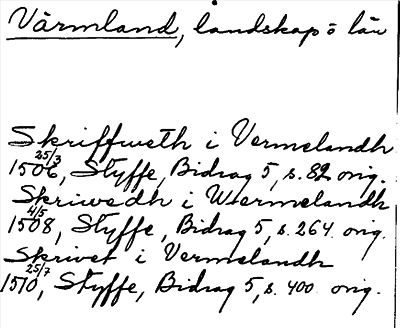 Värmland, landskap o län
Skriffweth i Vermelandh
1506 25/3, Styffe, Bidrag 5, s. 82 orig.
Skriwedh i Wermelandh
1508 4/5, Styffe, Bidrag 5, s. 264 orig.
Skrivet i Vermelandh
1510 25/7, Styffe, Bidrag 5, s. 400 orig.